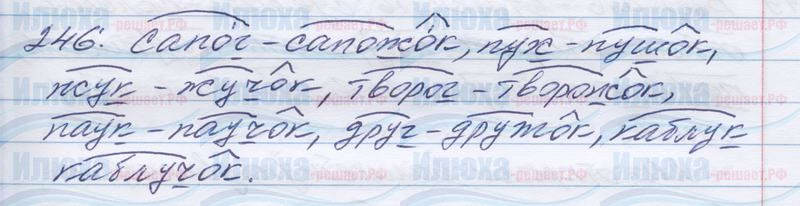 246. Сапог - сапожок, пух - пушок,
жук - жучок, творог - творожок,
паук - паучок, друг - дружок, каблук
каблучок.